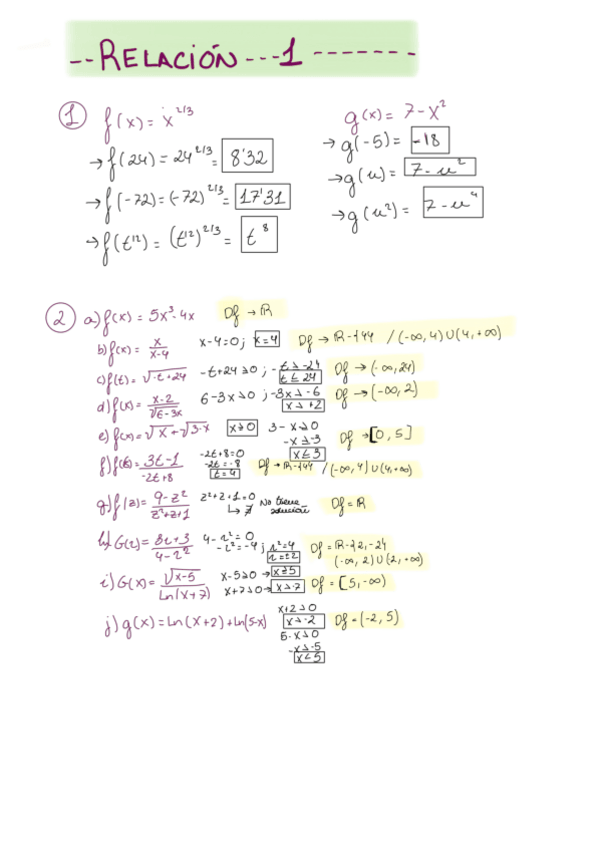 --RELACIÓN---1-------
① f(x) = x^2/3
→ f(24) = 24^2/3 = 8'32
→ f(-72) = (-72)^2/3 = 17'31
→ f(t^12) = (t^12)^2/3 = t^8
g(x) = 7 - x^2
→ g(-5) = -18
→ g(u) = 7 - u^2
→ g(u^2) = 7 - u^4
② a) f(x) = 5x^3 - 4x Df → ℝ
b) f(x) = x/(x-4) x-4=0; x=4 Df → ℝ-{4} / (-∞, 4) U (4, +∞)
c) f(t) = √(-t+24) -t+24≥0; -t≥-24 t≤24 Df → (-∞, 24)
d) f(x) = (x-2)/√(6-3x) 6-3x>0; -3x>-6 x>+2 Df → (-∞, 2)
e) f(x) = √x + √(3-x) x≥0 3-x≥0 -x≥-3 x≤3 Df → [0, 5]
f) f(t) = (3t-1)/(-2t+8) -2t+8=0 -2t=-8 t=4 Df → ℝ-{4} / (-∞, 4) U (4, +∞)
g) f(z) = (9-z^2)/(z^2+z+1) z^2+z+1=0 ↳ ∄ No tiene solución Df = ℝ
h) G(r) = (3r+3)/(4-r^2) 4-r^2=0 -r^2=-4; r^2=4 r=±2 Df = ℝ-{2,-2} (-∞, 2) U (2, +∞)
i) G(x) = √(x-5)/Ln(x+7) x-5≥0 → x≥5 x+7>0 → x>-7 Df = [5, -∞)
j) g(x) = Ln(x+2) + Ln(5-x) x+2>0 x>-2 Df = (-2, 5)
5-x>0
-x>-5
x<5